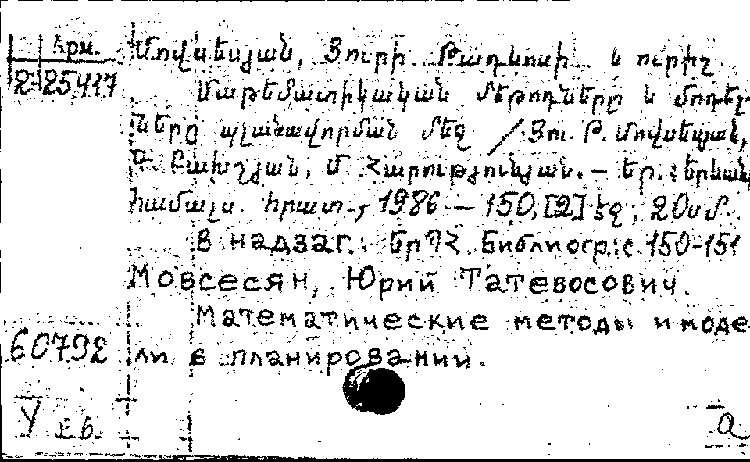 Арм.
2-25417
Մովսեսյան, Յուրի Թադևոսի և ուրիշ.
Մաթեմատիկական մեթոդները և մոդել-
ները պլանավորման մեջ / Յու. Թ. Մովսեսյան,
Բախշյան, Մ. Հարությունյան. – Եր.: Երևանի
համալս. հրատ., 1986 – 150, [2] էջ, 20սմ.
В надзаг.: ԵրՊՀ. Библиогр.: с. 150-151
Мовсесян, Юрий Татевосович.
Математические методы и моде
60792 ли в планировании.
У
а